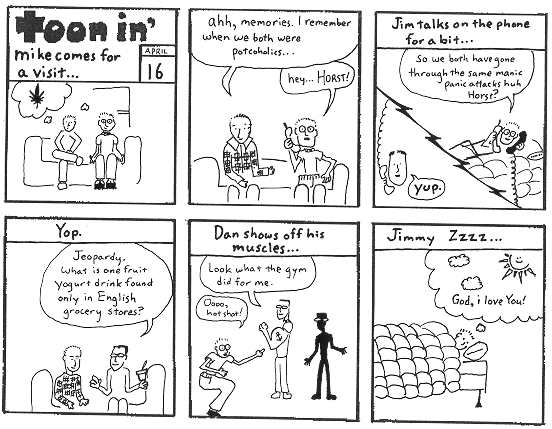 toon in'
mike comes for
a visit...
APRIL
16
ahh, memories. I remember
when we both were
potcoholics...
hey... HORST!
Jim talks on the phone
for a bit...
So we both have gone
through the same manic
panic attacks huh
Horst?
yup.
Yop.
Jeopardy.
What is one fruit
yogurt drink found
only in English
grocery stores?
Dan shows off his
muscles...
Look what the gym
did for me.
Oooo,
hot shot!
Jimmy Zzzz...
God, i love You!